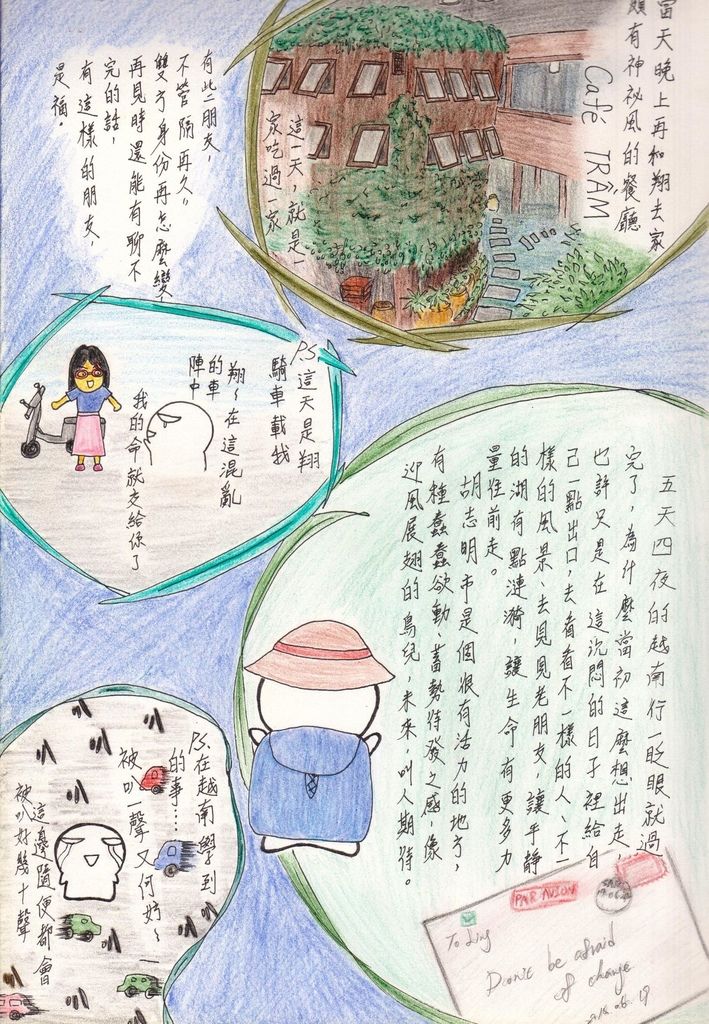 當天晚上再和翔去家
頗有神祕風的餐廳
Café TRÂM
這一天,就是一
家吃過一家
有些朋友,
不管隔再久,
雙方身份再怎麼變,
再見時還能有聊不
完的話,
有這樣的朋友,
是福。
P.S. 這天是翔
騎車載我
翔~在這混亂
的車
陣中
我的命就交給你了
五天四夜的越南行一眨眼就過
完了,為什麼當初這麼想出走,
也許只是在這沉悶的日子裡給自
己一點出口,去看看不一樣的人、不一
樣的風景、去見見老朋友,讓平靜
的湖有點漣漪,讓生命有更多力
量往前走。
胡志明市是個很有活力的地方,
有種蠢蠢欲動、蓄勢待發之感,像
迎風展翅的鳥兒,未來,叫人期待。
P.S. 在越南學到
的事……
被叭一聲又何妨~
這邊隨便都會
被叭好幾十聲
PAR AVION
To Ling
Don't be afraid
of change